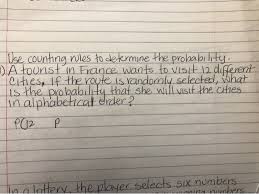 Use counting rules to determine the probability.
1) A tourist in France wants to visit 12 different
cities. If the route is randomly selected, what
is the probability that she will visit the cities
in alphabetical order?
P(12 P
In a lottery, the player selects six numbers